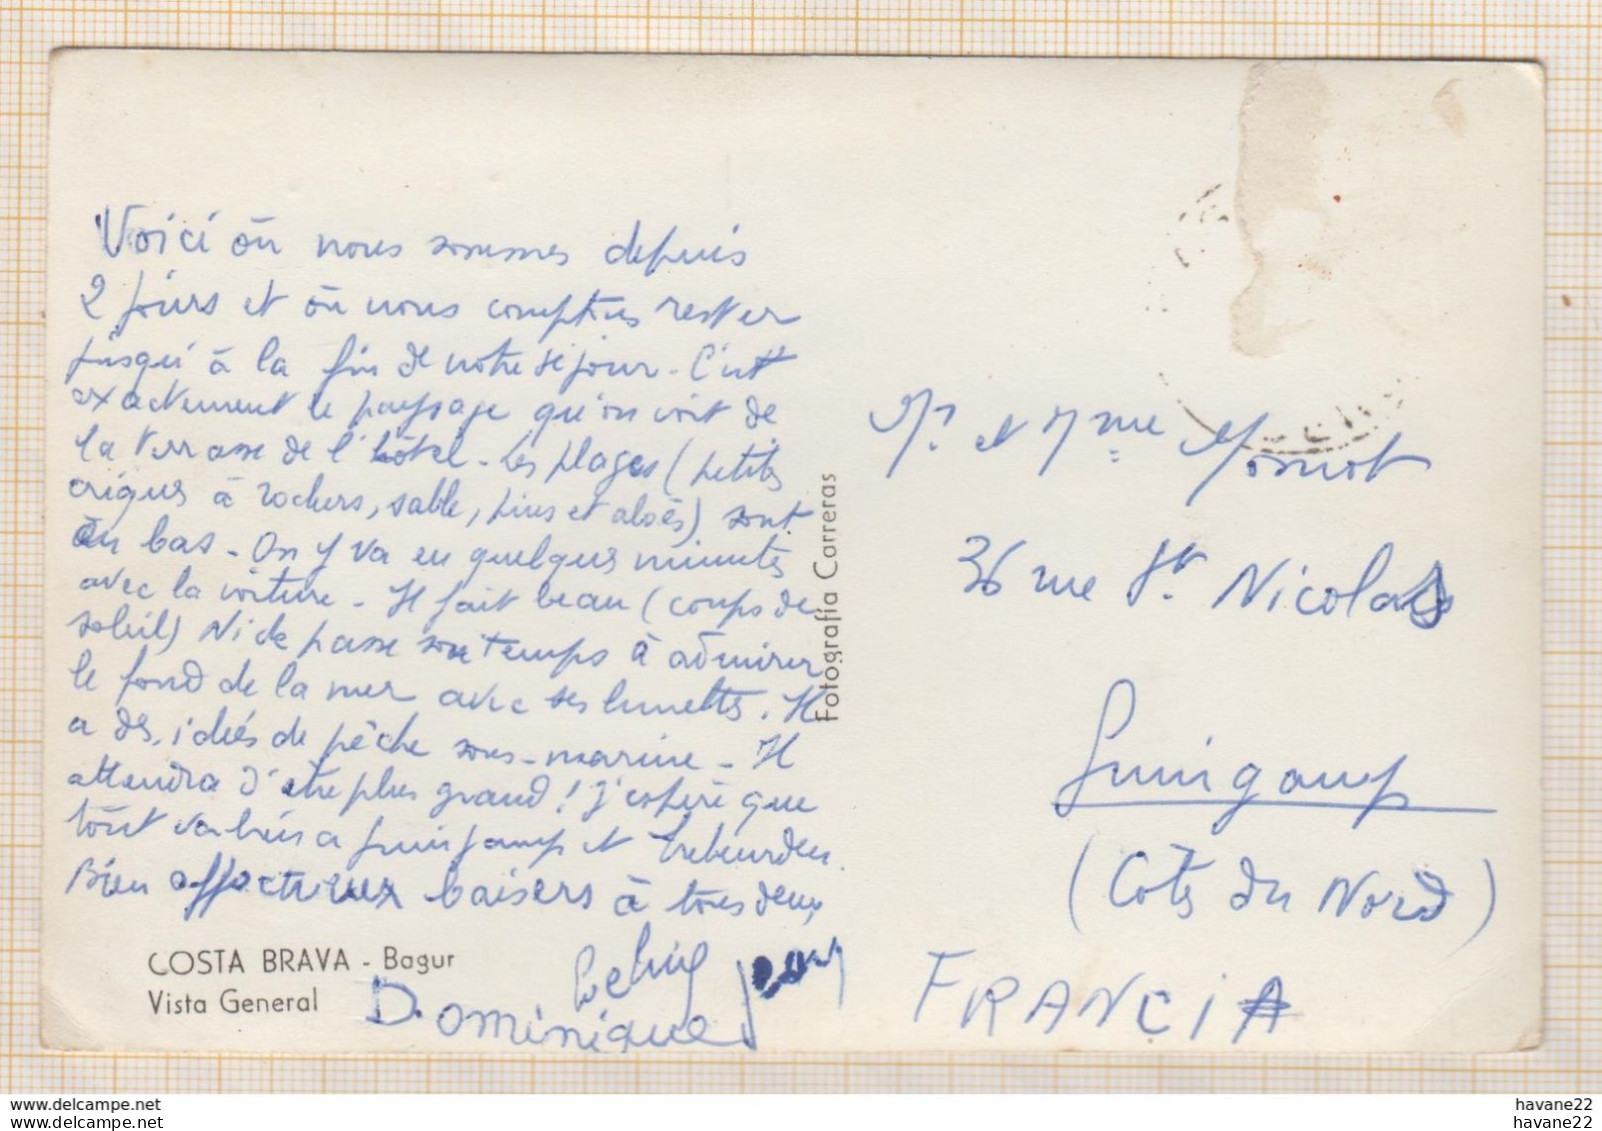 Voici où nous sommes depuis
2 jours et où nous comptons rester
jusqu'à la fin de notre séjour - C'est
exactement le paysage qu'on voit de
la terrasse de l'hôtel - Les plages (petites
criques à rochers, sable, pins et aloès) sont
en bas - On y va en quelques minutes
avec la voiture - Il fait beau (coups de
soleil) passe son temps à admirer
le fond de la mer avec ses lunettes. Il
a des idées de pêche sous-marine - Il
attendra d'être plus grand ! J'espère que
tout va bien à Guingamp et Trebeurden.
Bien affectueux baisers à tous deux
Dominique
COSTA BRAVA - Bagur
Vista General
Fotografía Carreras
Mr. et Mme
36 rue St. Nicolas
Guingamp
(Côtes du Nord)
FRANCIA
www.delcampe.net
www.delcampe.net
havane22
havane22